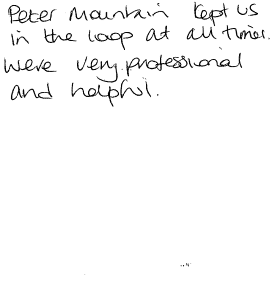 Peter Mountain kept us
in the loop at all times.
Were very professional
and helpful.